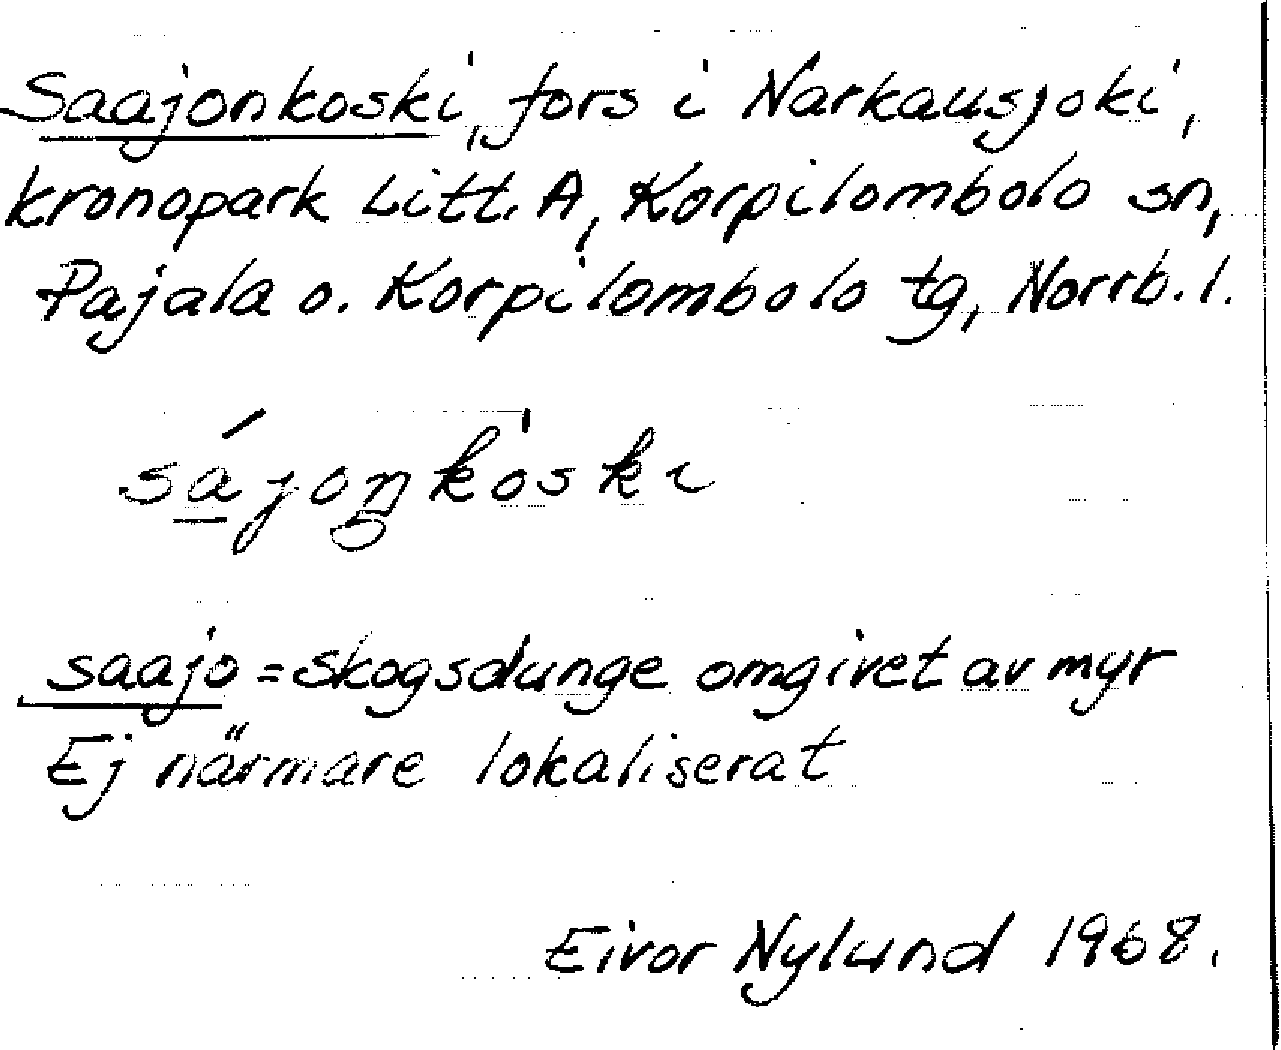 Saajonkoski, fors i Narkausjoki,
kronopark Litt. A, Korpilombolo sn,
Pajala o. Korpilombolo tg, Norrb. l.
sá̱joŋkòski
saajo = skogsdunge omgivet av myr
Ej närmare lokaliserat
Eivor Nylund 1968.